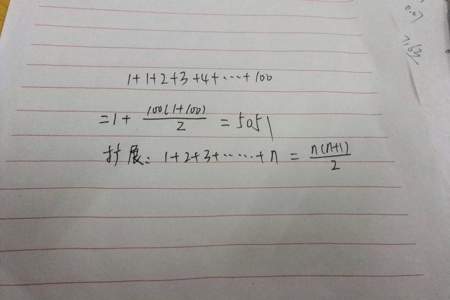 1+1+2+3+4+⋯+100
=1+ 100(1+100)/2 =5051
扩展: 1+2+3+⋯⋯+n = n(n+1)/2